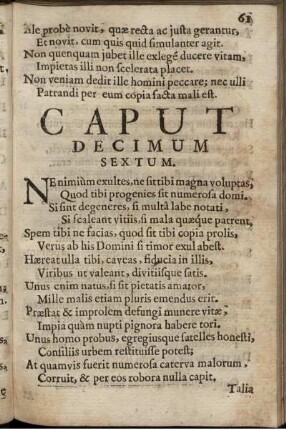 61
Ale probè novit, quæ recta ac justa gerantur,
Et novit, cum quis quid simulanter agit.
Non quenquam jubet ille exlegē ducere vitam,
Impietas illi non scelerata placet.
Non veniam dedit ille homini peccare; nec ulli
Patrandi per eum copia facta mali est.
CAPUT
DECIMUM
SEXTUM.
NE nimiùm exultes, ne sit tibi magna voluptas,
Quod tibi progenies sit numerosa domi.
Si sint degeneres, si multâ labe notati,
Si scaleant vitiis, si mala quæque patrent,
Spem tibi ne facias, quod sit tibi copia prolis,
Verus ab his Domini si timor exul abest.
Hæreat ulla tibi, caveas, fiducia in illis,
Viribus ut valeant, divitiisque satis.
Unus enim natus, si sit pietatis amator,
Mille malis etiam pluris emendus erit.
Præstat & improlem defungi munere vitæ,
Impia quàm nupti pignora habere tori.
Unus homo probus, egregiusque satelles honesti,
Consiliis urbem restituisse potest;
At quamvis fuerit numerosa caterva malorum,
Corruit, & per eos robora nulla capit,
Talia